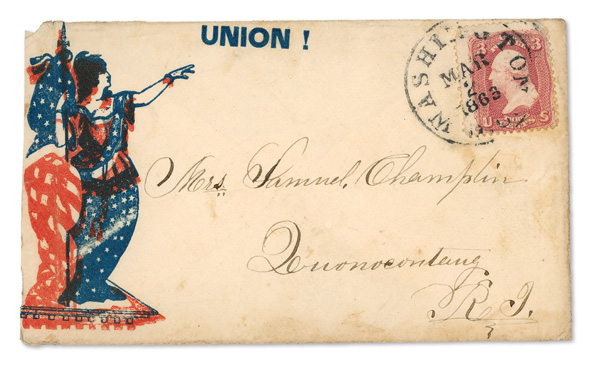 UNION !
WASHINGTON
MAR
2
1863
3 3
U S
Mrs. Samuel, Champlin
Quonocontaug
R. I.